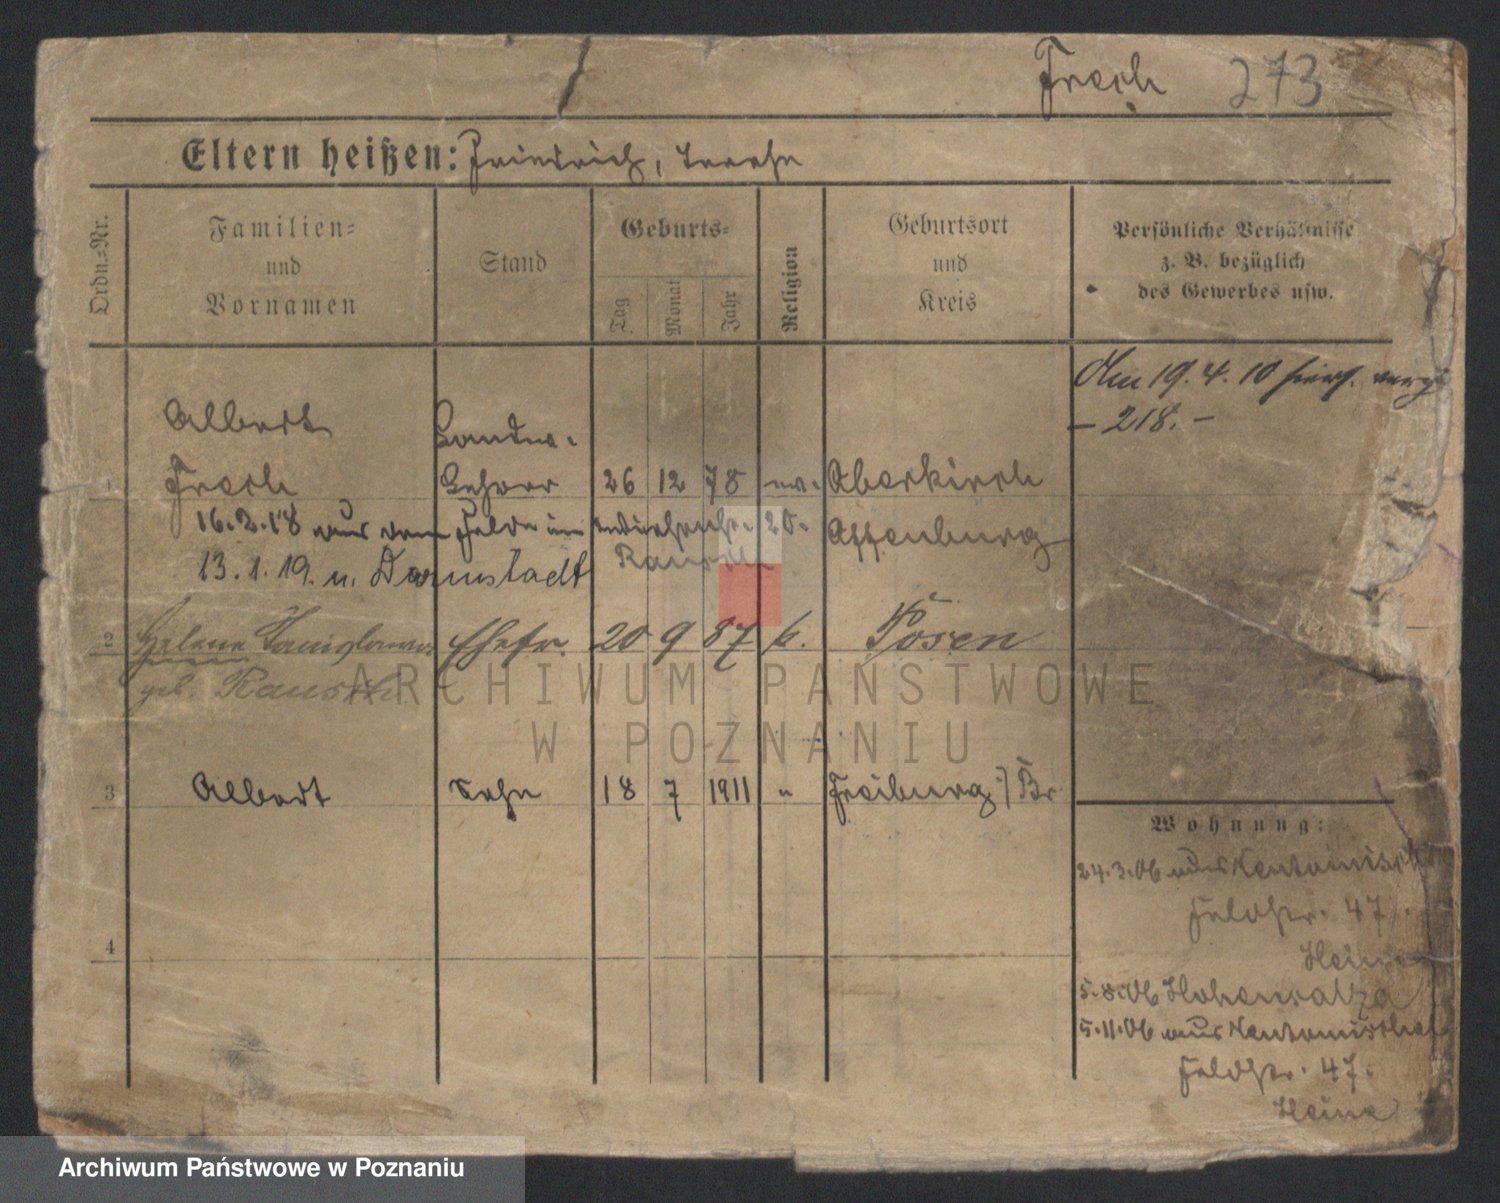 Frech 273
Eltern heißen: Friedrich,
Ordn.-Nr.
Familien-
und
Vornamen
Stand
Geburts-
Tag
Monat
Jahr
Religion
Geburtsort
und
Kreis
Persönliche Verhältnisse
z. B. bezüglich
des Gewerbes usw.
Am 19. 4. 10 hier
- 218. -
Albert
1 Frech Lehrer 26 12 78 Oberkirch
16. 2. 18 aus dem Felde 20. Offenburg
Rausch
13. 1. 19. n. Darmstadt
2 Helene Ehefr. 20 9 87 k. Posen
geb.
3 Albert Sohn 18 7 1911 " Freiburg i/Br
4
Wohnung:
24. 3. 06 aus
Feldstr. 47.
Heine
5. 8. 06 Hohensalza
5. 11. 06 aus
Feldstr. 47.
Heine
ARCHIWUM PAŃSTWOWE
W POZNANIU
Archiwum Państwowe w Poznaniu